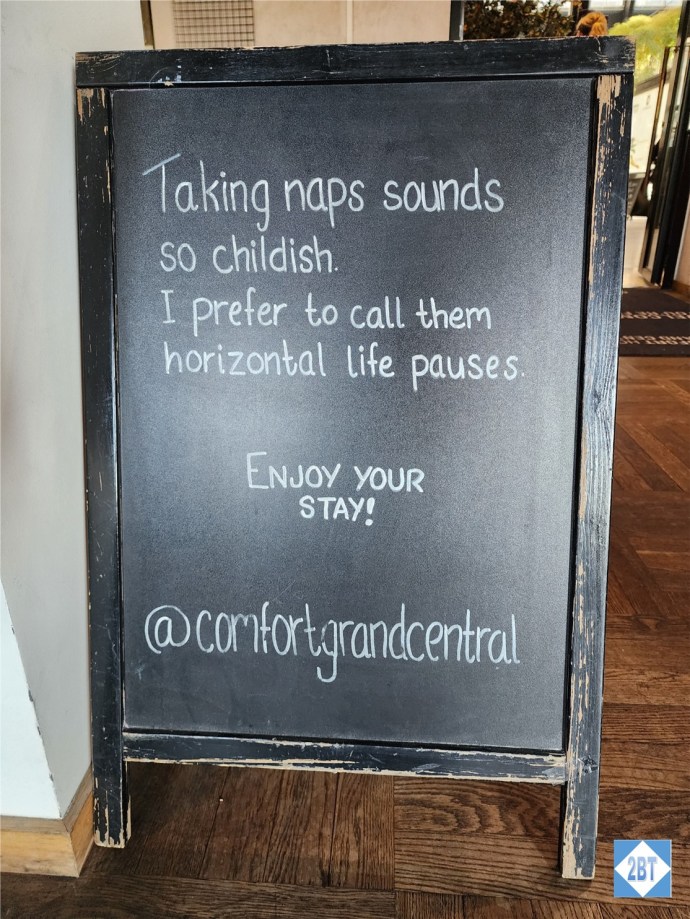 Taking naps sounds
so childish.
I prefer to call them
horizontal life pauses.
ENJOY YOUR
STAY!
@comfortgrandcentral
2BT